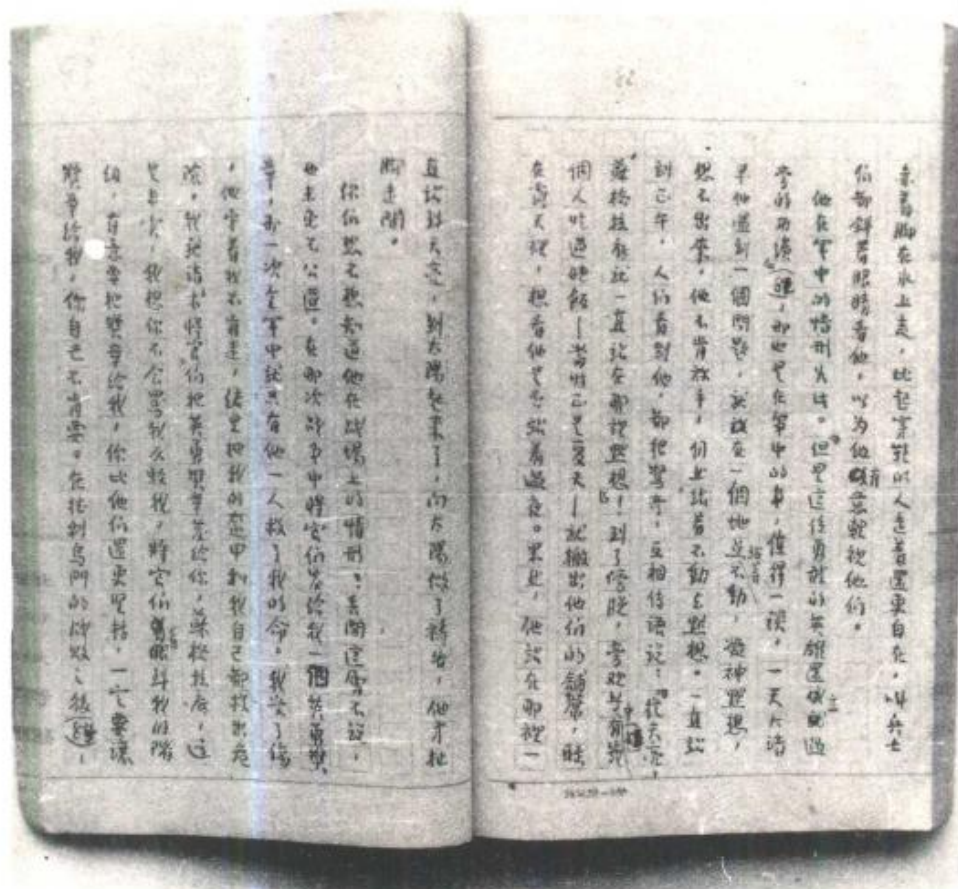 赤着脚在冰上走，比起穿鞋的人走着還更自在，以兵士
们都斜着眼睛看他，以为他有意輕視他们。
他在軍中的情形如此。但是这位勇敢的英雄還成就過
别的功績，那也是在軍中的事，值得一談。一天大清
早他遇到一個問題，就站在一個地並不動，凝神默想，
想不出来，他不肯放手，仍立站着不動去默想。一直站
到正午，人们看到他，都把驚奇，互相传语说：從天亮，
蘇格拉底就一直站在那裡默想！到了傍晚，有些
個人吃過晚飯—当时已是夏天—就搬出他们的鋪蓋，睡
在露天裡，想看他是否站着過夜。果然，他站在那裡一
直站到天亮，到太陽起来了，向太陽做了禱告，他才扯
脚走開。
你们想必想知道他在战場上的情形；丢開这層不說，
也未免不公道。在那次战争中将官们发给我一個英勇獎
章，那一次全軍中就只有他一人救了我的命。我受了傷
，他守着我不肯走，结果把我的盔甲和我自己都救出危
險。我就請求将官们把英勇獎章发给你，蘇格拉底，这
是真实，我想你不会罵我或駁我，将官们看眼斜我的階
级，有意要把獎章给我，你比他们還更坚持，一定要讓
獎章给我，你自己不肯要。在托利乌門的战败之後，